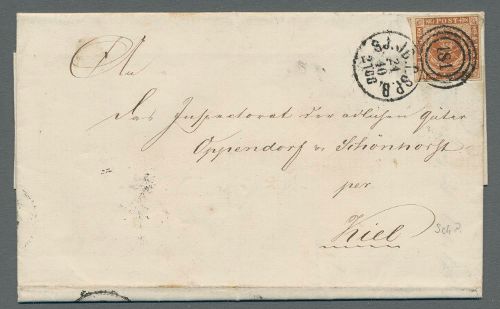 POST
181
S.J.JB.P.SP.B.
24
10
2 ZUG
An
Das Inspectorat der adlichen Güter
Oppendorf u. Schönhorst
per
Kiel